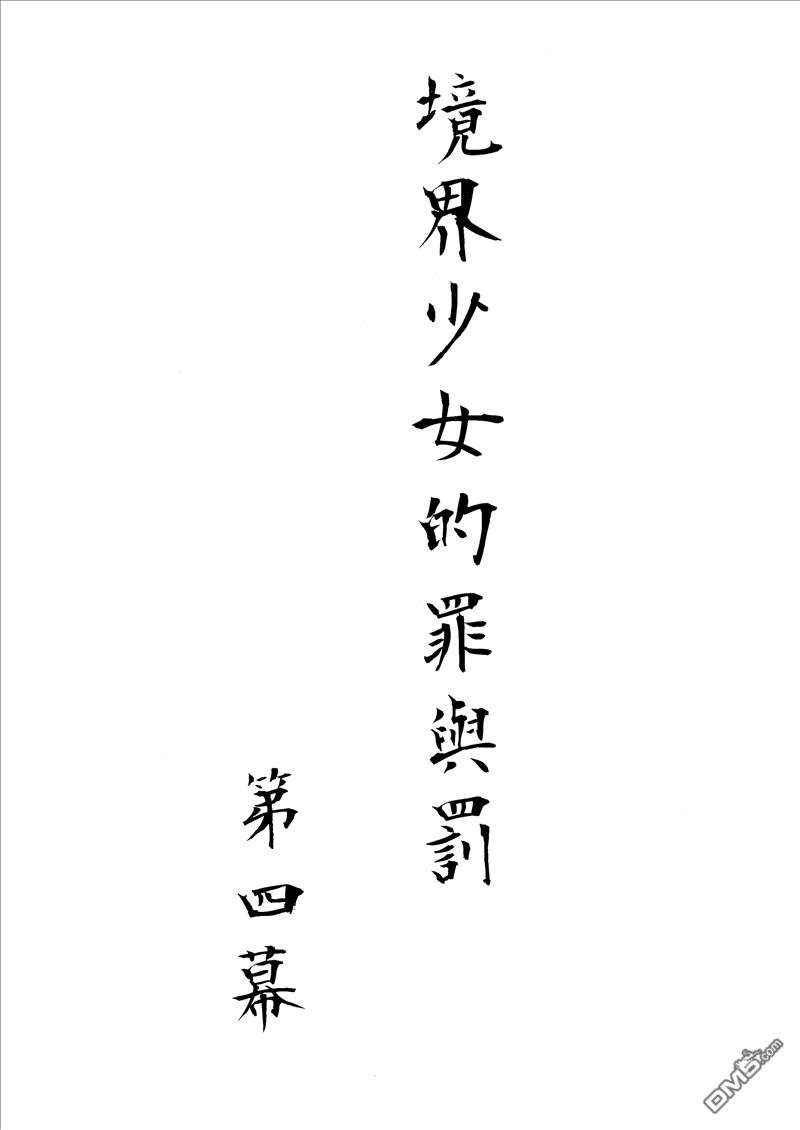 境界少女的罪與罰
第四幕
DM5.com